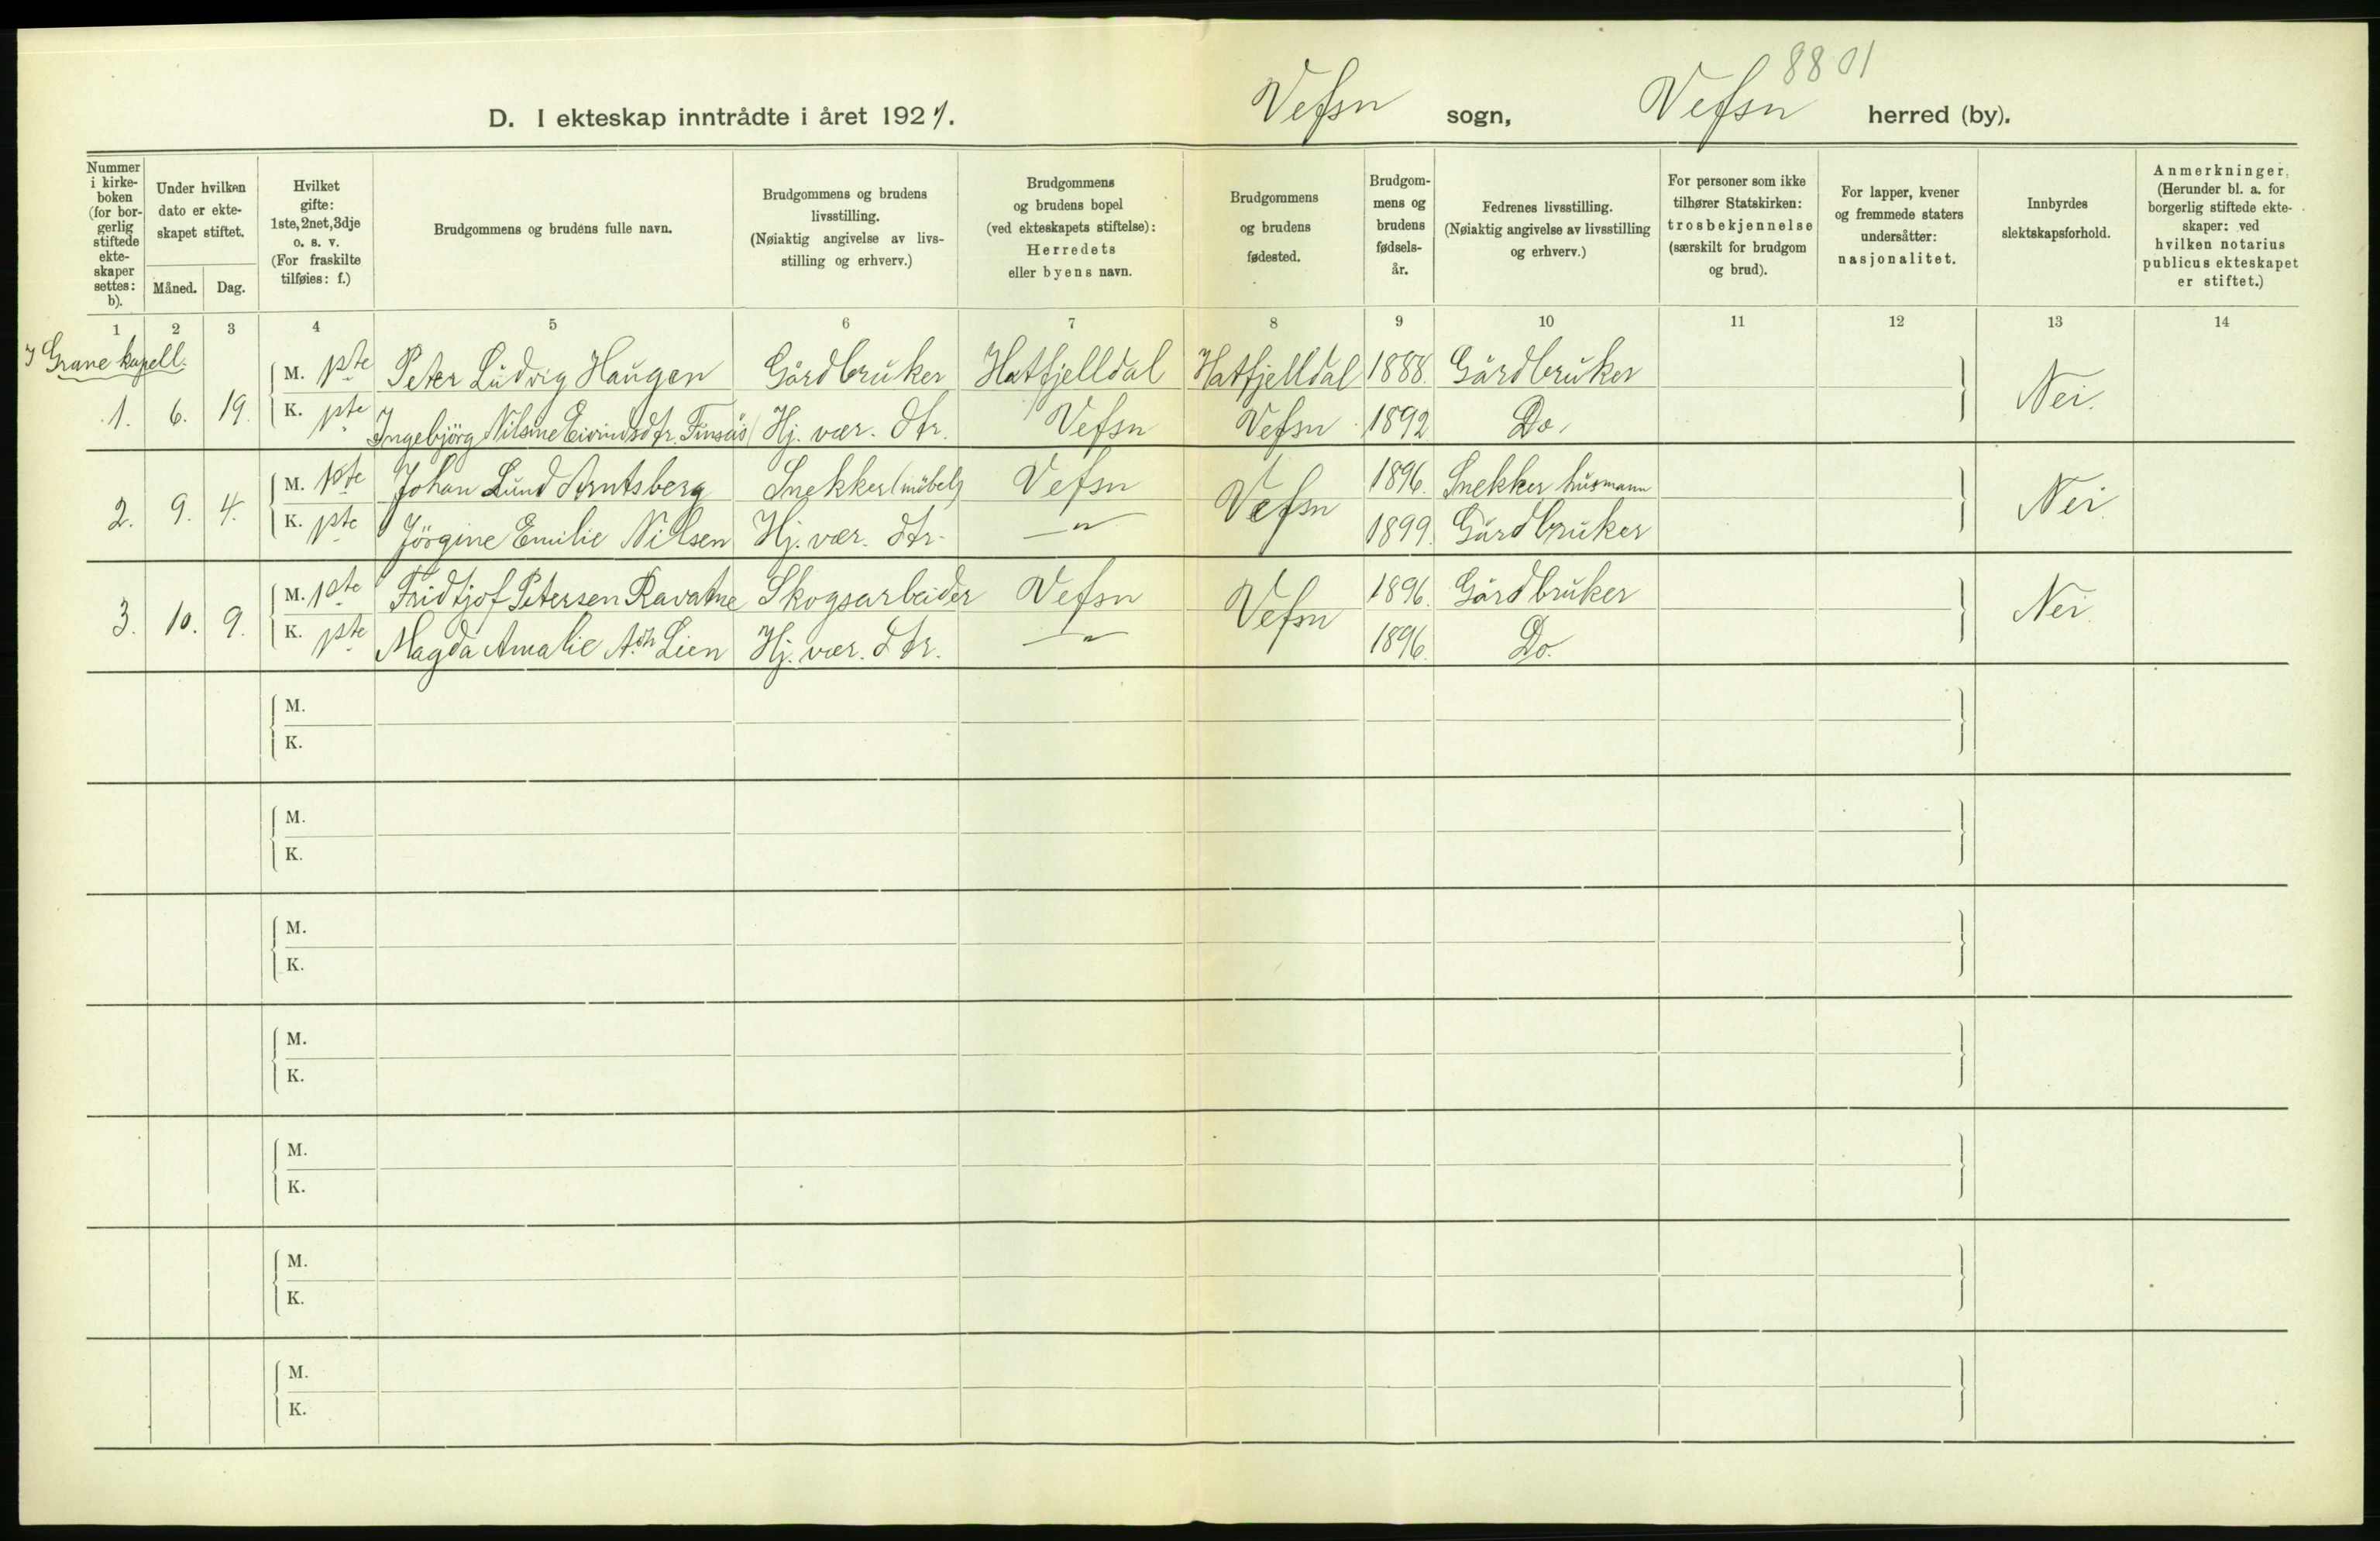 8801
D. I ekteskap inntrådte i året 1921. Vefsn sogn, Vefsn herred (by).
Nummer i kirke- boken (for bor- gerlig stiftede ekte- skaper settes: b).
Under hvilken dato er ekte- skapet stiftet.
Måned. Dag.
Hvilket gifte: 1ste, 2net, 3dje o. s. v. (For fraskilte tilføies: f.)
Brudgommens og brudens fulle navn.
Brudgommens og brudens livsstilling. (Nøiaktig angivelse av livs- stilling og erhverv.)
Brudgommens og brudens bopel (ved ekteskapets stiftelse): Herredets eller byens navn.
Brudgommens og brudens fødested.
Brudgom- mens og brudens fødsels- år.
Fedrenes livsstilling. (Nøiaktig angivelse av livsstilling og erhverv.)
For personer som ikke tilhører Statskirken: trosbekjennelse (særskilt for brudgom og brud).
For lapper, kvener og fremmede staters undersåtter: nasjonalitet.
Innbyrdes slektskapsforhold.
Anmerkninger, (Herunder bl. a. for borgerlig stiftede ekte- skaper: ved hvilken notarius publicus ekteskapet er stiftet.)
1 2 3 4 5 6 7 8 9 10 11 12 13 14
I Grane kapell.
1. 6. 19. M. 1ste Peter Ludvig Haugen Gårdbruker Hatfjelldal Hatfjelldal 1888. Gårdbruker Nei.
K. 1ste Ingebjörg Nilsine Eivindsdtr. Finsås Hj. vær. dtr. Vefsn Vefsn 1892 Do.
2. 9. 4. M. 1ste Johan Lund Arntsberg Snekker (möbel) Vefsn Vefsn 1896. Snekker husmann Nei
K. 1ste Jörgine Emilie Nilsen Hj. vær. dtr. —"— 1899. Gårdbruker
3. 10. 9. M. 1ste Fridtjof Petersen Ravatne Skogsarbeider Vefsn Vefsn 1896. Gårdbruker Nei.
K. 1ste Magda Amalie Lien Hj. vær. dtr. —"— 1896. Do.
M.
K.
M.
K.
M.
K.
M.
K.
M.
K.
M.
K.
M.
K.